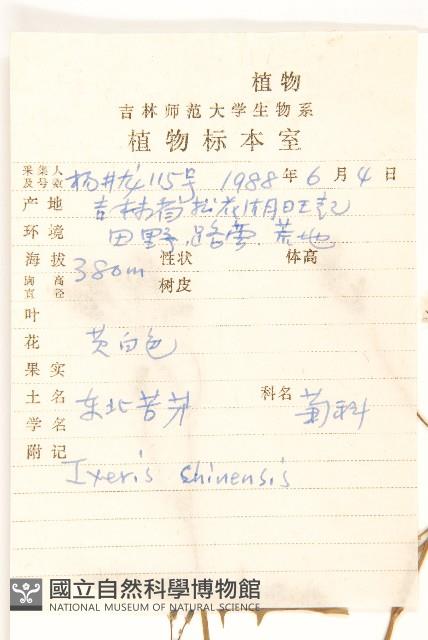 植物
吉林师范大学生物系
植物标本室
采集人及号数 杨井龙 115号 1988年6月4日
产地 吉林省松花湖旺起
环境 田野.路旁.荒地
海拔 380m 性状 体高
胸高直径 树皮
叶
花 黄白色
果实
土名 东北苦菜 科名 菊科
学名
附记 Ixeris chinensis
國立自然科學博物館
NATIONAL MUSEUM OF NATURAL SCIENCE